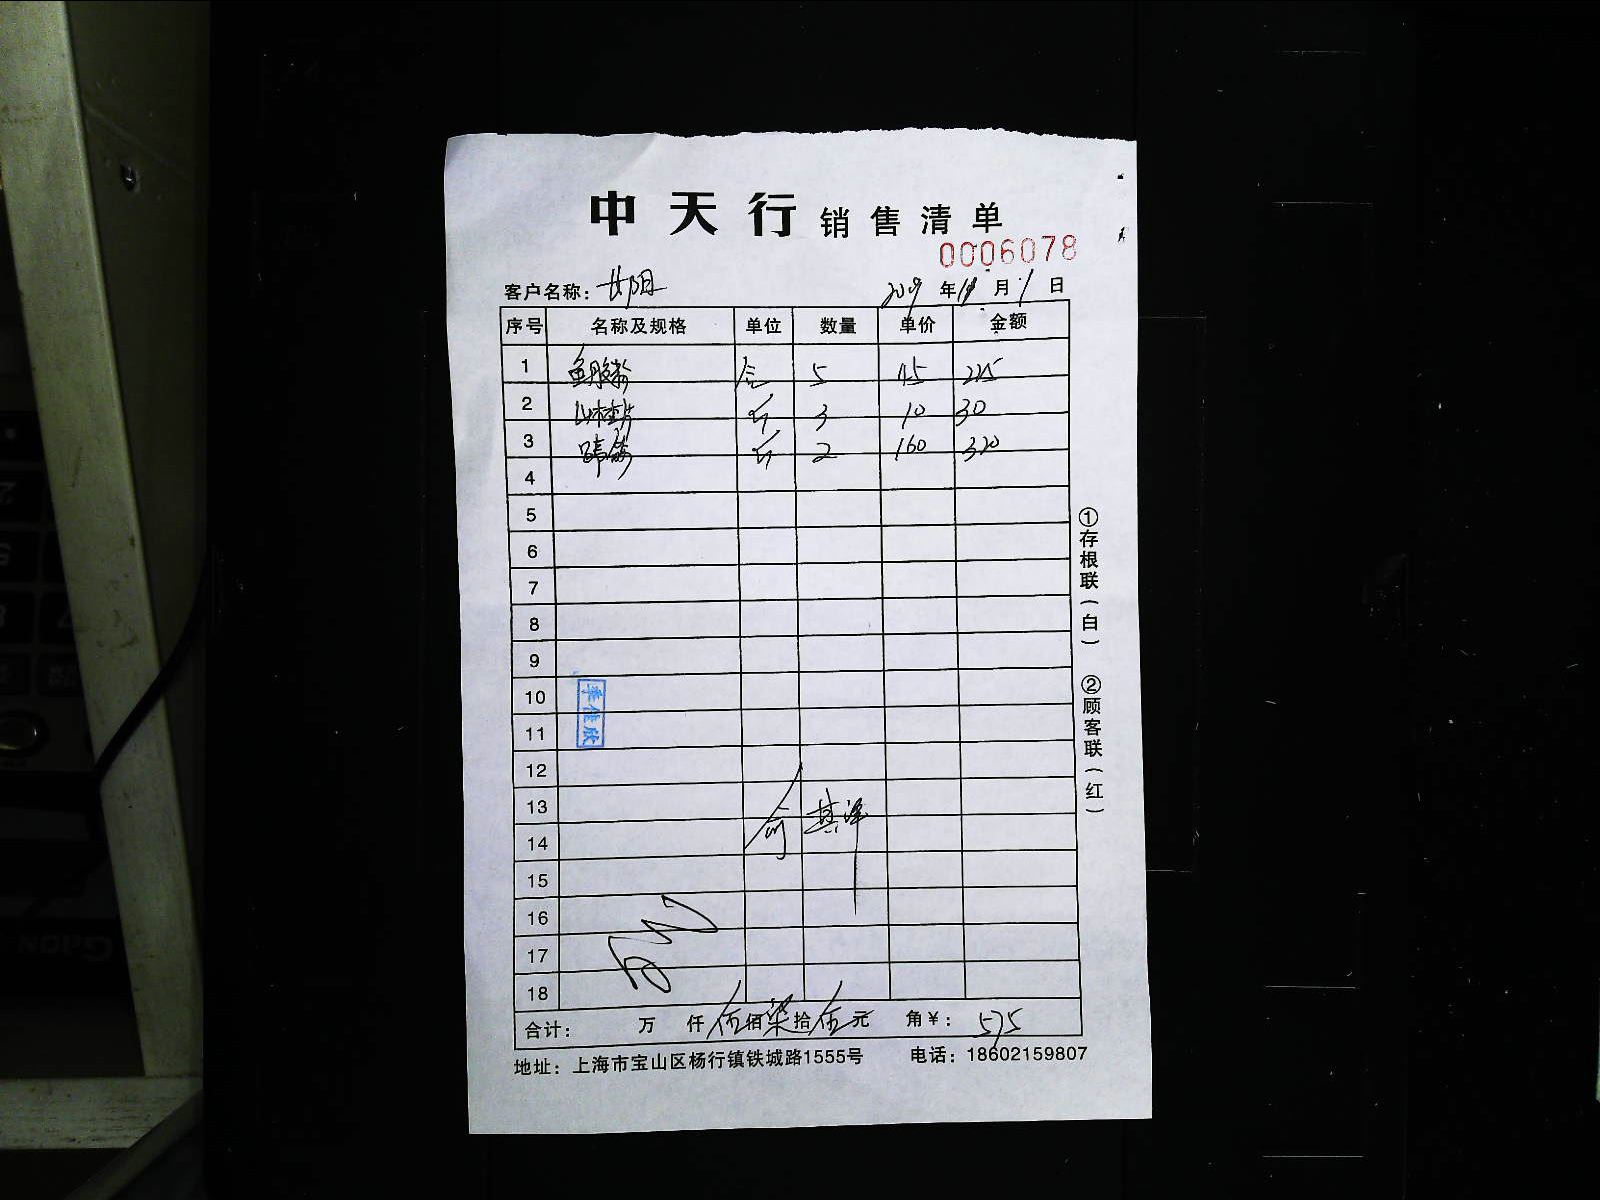 中天行 销售清单
0006078
客户名称： 2019 年 11 月 1 日
序号 名称及规格 单位 数量 单价 金额
1 鱼胶粉 5 45 225
2 山楂片 斤 3 10 30
3 蹄筋 斤 2 160 320
4
5
6
7
8
9
10
11
12
13
14
15
16
17
18
合计： 万 仟 伍 佰 柒 拾 伍 元 角 ¥： 575
地址：上海市宝山区杨行镇铁城路1555号 电话：18602159807
①存根联（白） ②顾客联（红）